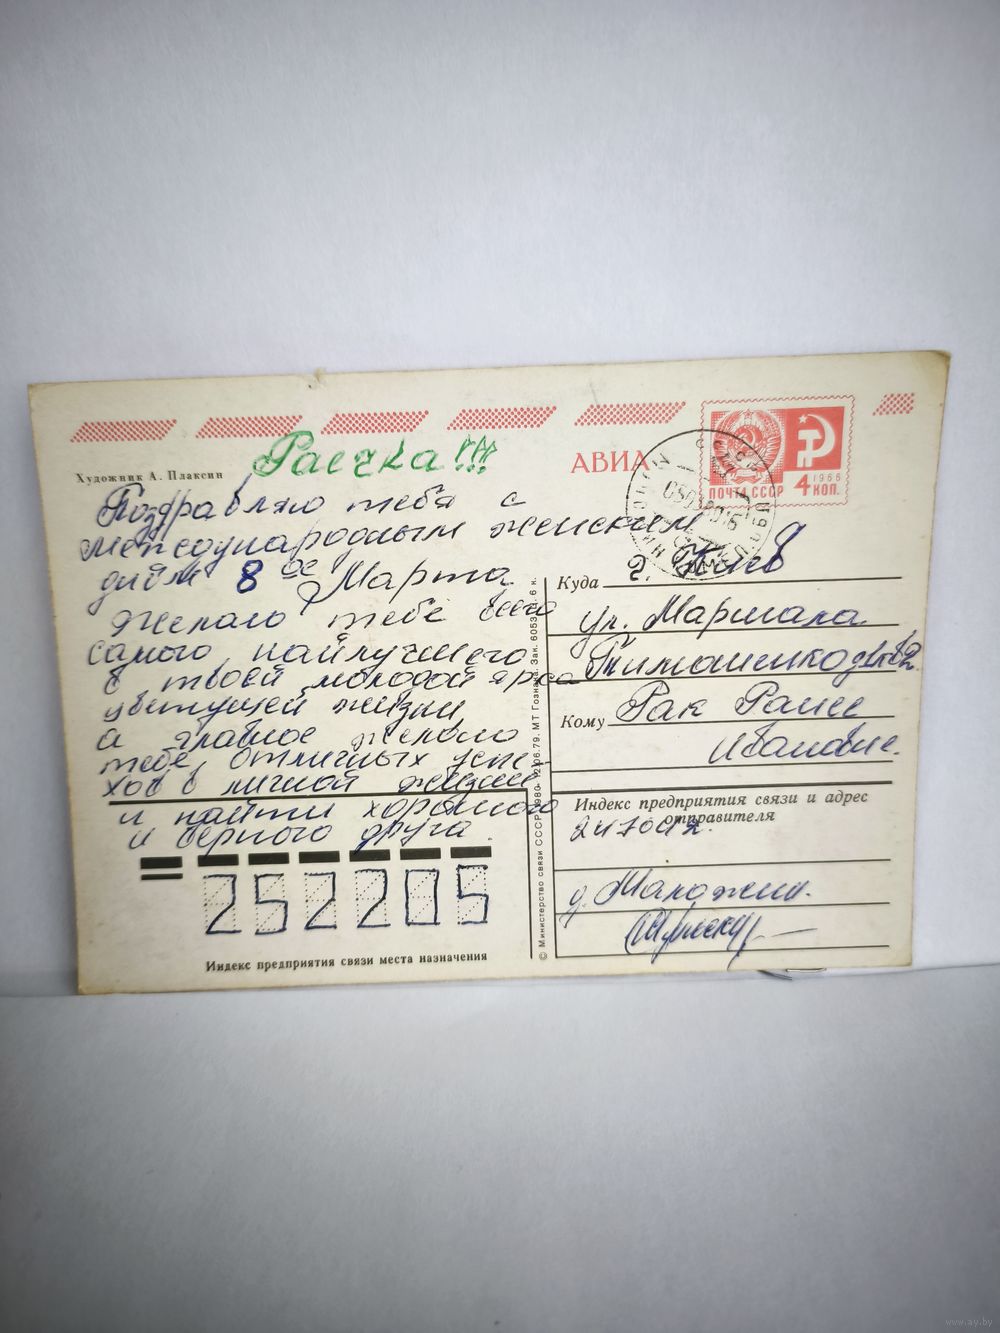 АВИА
ПОЧТА СССР
1966
4 коп.
Художник А. Плаксин
Раечка!!!
Поздравляю тебя с
международным женским
днём 8ое Марта
Желаю тебе всего
самого найлучшего
в твоей молодой ярко
цветущей жизни
а главное желаю
тебе, отличных успе-
хов в личной жизни
и найти хорошего
и верного друга.
Куда г. Киев
ул. Маршала
Тимошенко
Кому Рак Раисе
Ивановне.
Индекс предприятия связи и адрес
отправителя
д. Маложин.
252205
Индекс предприятия связи места назначения
© Министерство связи СССР. 1980. 12.06.79. МТ Гознака. Зак. 6053. Ц. 6 к.
www.ay.by